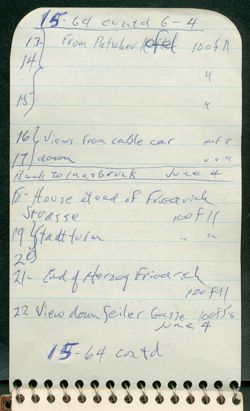 15-64 contd 6-4
13 From Patscherkofel 100 f 11
14 "
15 "
16 Views from cable car 100 f 11
17 down " " "
Back to Innsbruck June 4
18 - House at end of Friedrich
Strasse 100 f 11
19 Stadtturm " "
20
21 - End of Herzog Friedrich
100 f 11
22 View down Seiler Gasse
June 4
15-64 contd